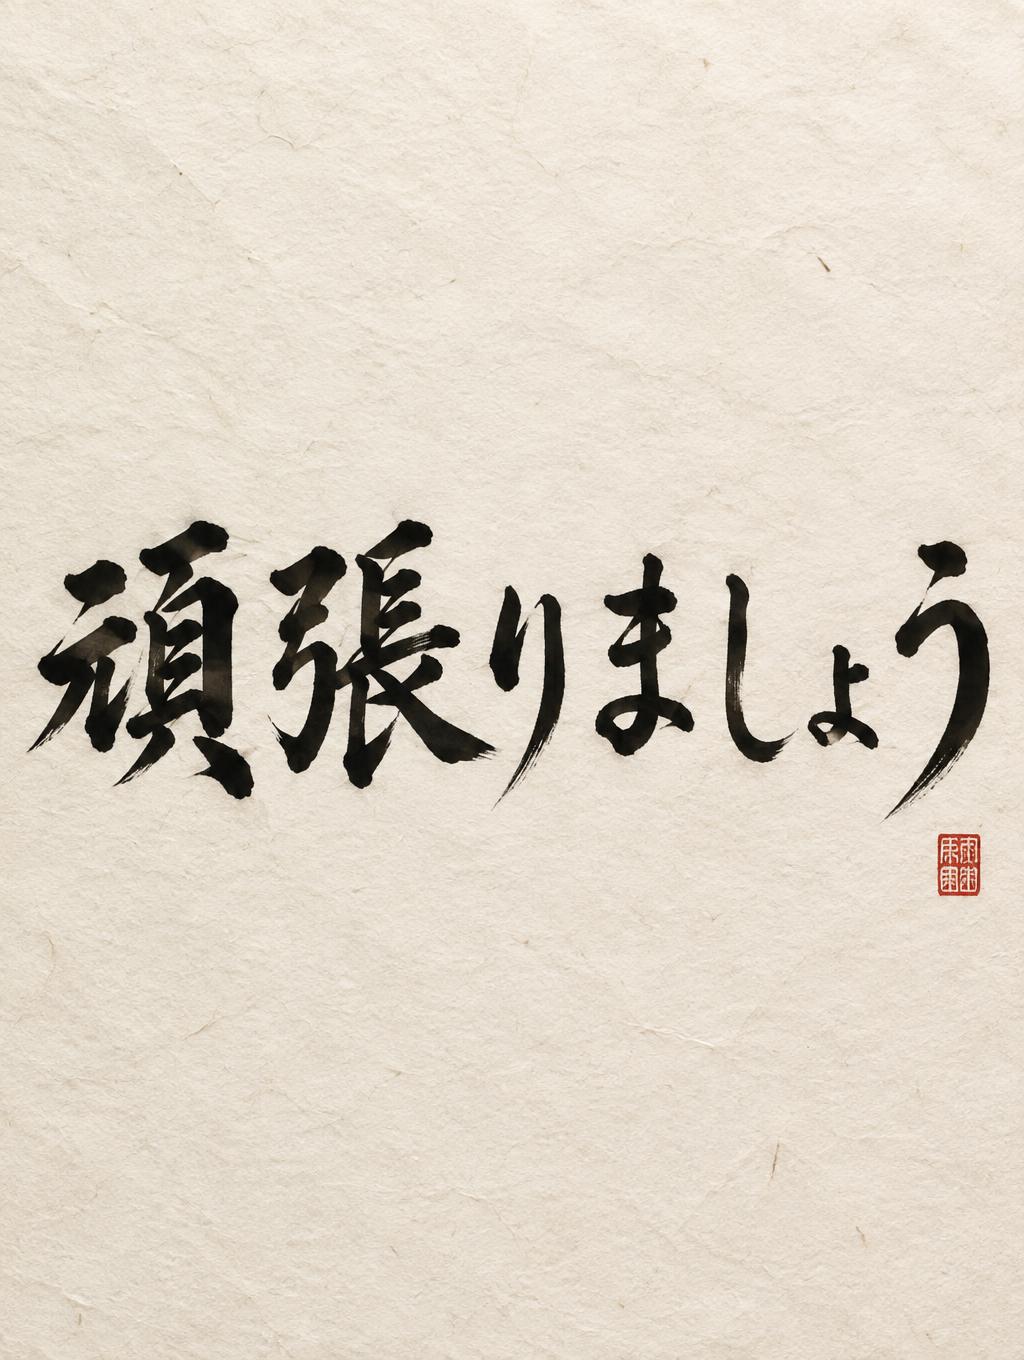 頑張りましょう